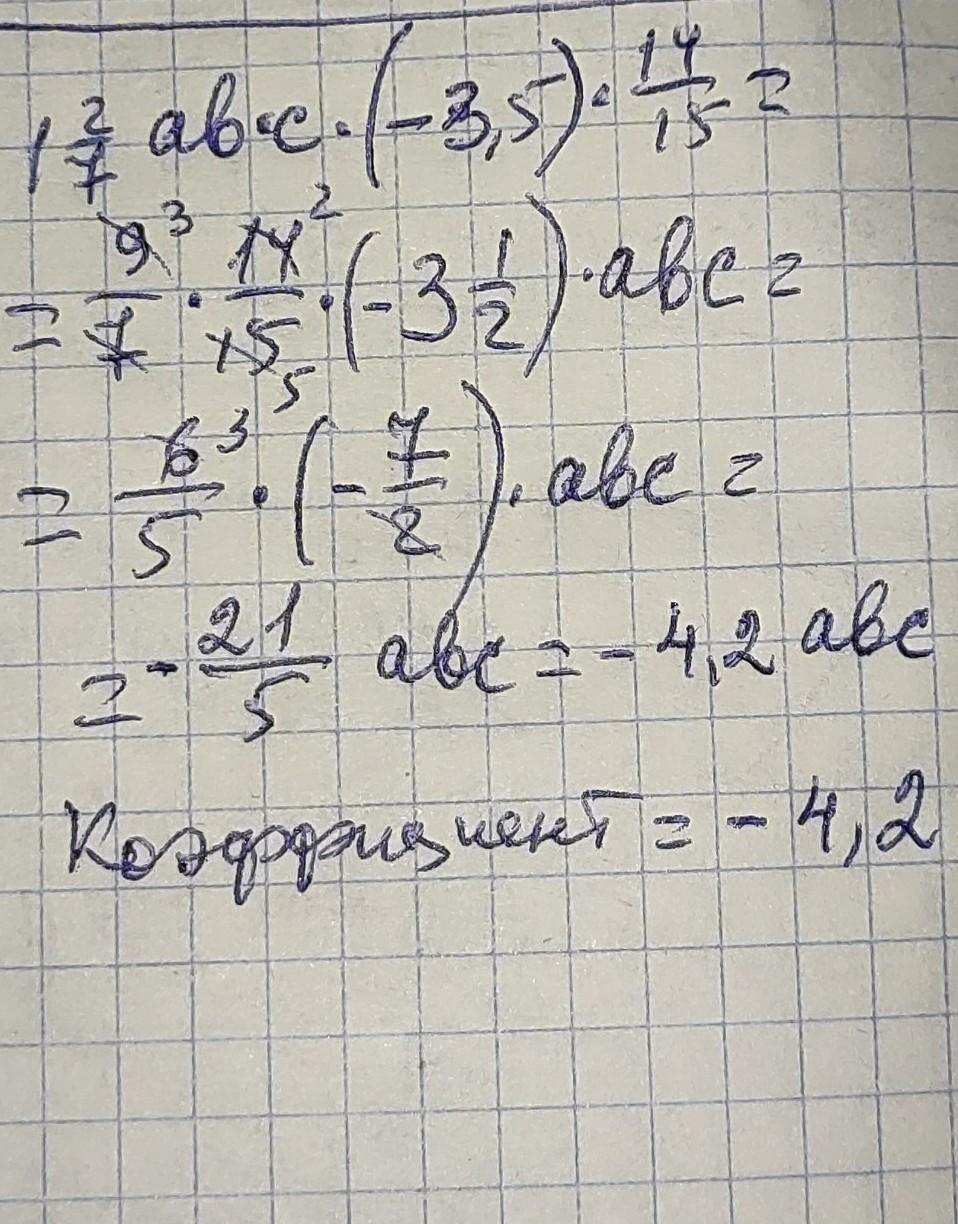 1 2/7 ab·c · (-3,5) · 14/15 =
= 9³/7 · 14²/15₅ · (-3 1/2) · abc =
= 6³/5 · (-7/2) · abc =
= - 21/5 abc = - 4,2 abc
Коэффициент = - 4,2